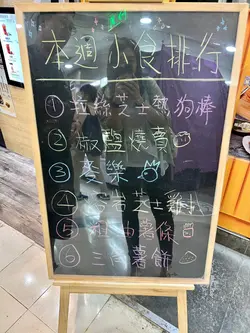 本週小食排行
① 拉絲芝士熱狗棒
② 椒鹽燒賣
③ 麥樂
④ 芝士
⑤ 薯條
⑥ 三角薯餅